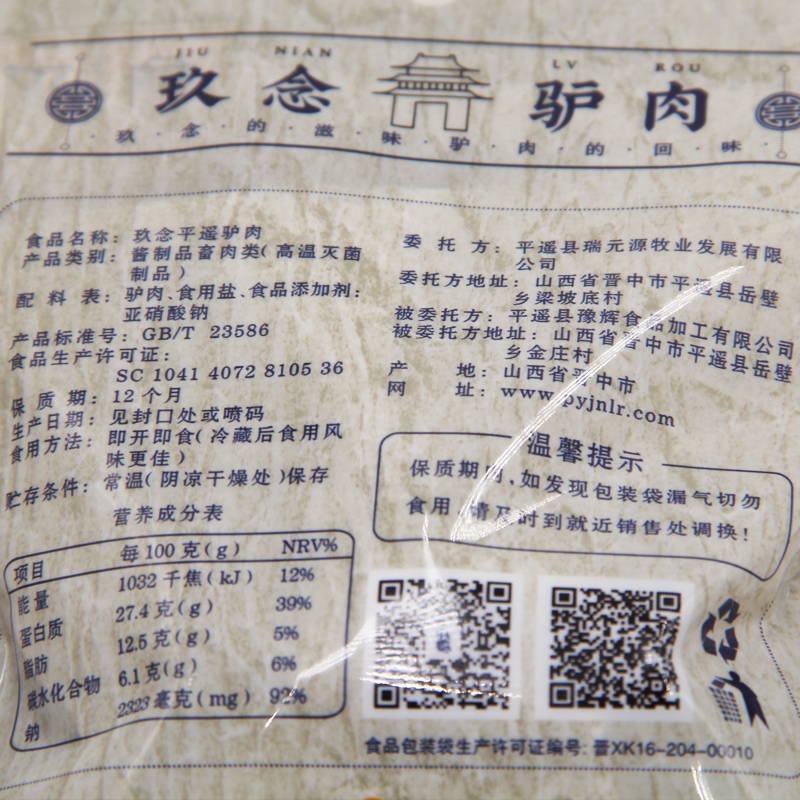 JIU NIAN LV ROU
玖念 驴肉
·玖·念·的·滋·味·驴·肉·的·回·味·
食品名称：玖念平遥驴肉
产品类别：酱制品畜肉类(高温灭菌
制品)
配料表：驴肉、食用盐、食品添加剂：
亚硝酸钠
产品标准号：GB/T 23586
食品生产许可证：
SC 1041 4072 8105 36
保质期：12个月
生产日期：见封口处或喷码
食用方法：即开即食(冷藏后食用风
味更佳)
贮存条件：常温(阴凉干燥处)保存
委托方：平遥县瑞元源牧业发展有限
公司
委托方地址：山西省晋中市平遥县岳壁
乡梁坡底村
被委托方：平遥县豫辉食品加工有限公司
被委托方地址：山西省晋中市平遥县岳壁
乡金庄村
产地：山西省晋中市
网址：www.pyjnlr.com
温馨提示
保质期内,如发现包装袋漏气切勿
食用,请及时到就近销售处调换!
营养成分表
项目 每100克(g) NRV%
能量 1032千焦(kJ) 12%
蛋白质 27.4克(g) 39%
脂肪 12.5克(g) 5%
碳水化合物 6.1克(g) 6%
钠 2323毫克(mg) 92%
食品包装袋生产许可证编号：晋XK16-204-00010